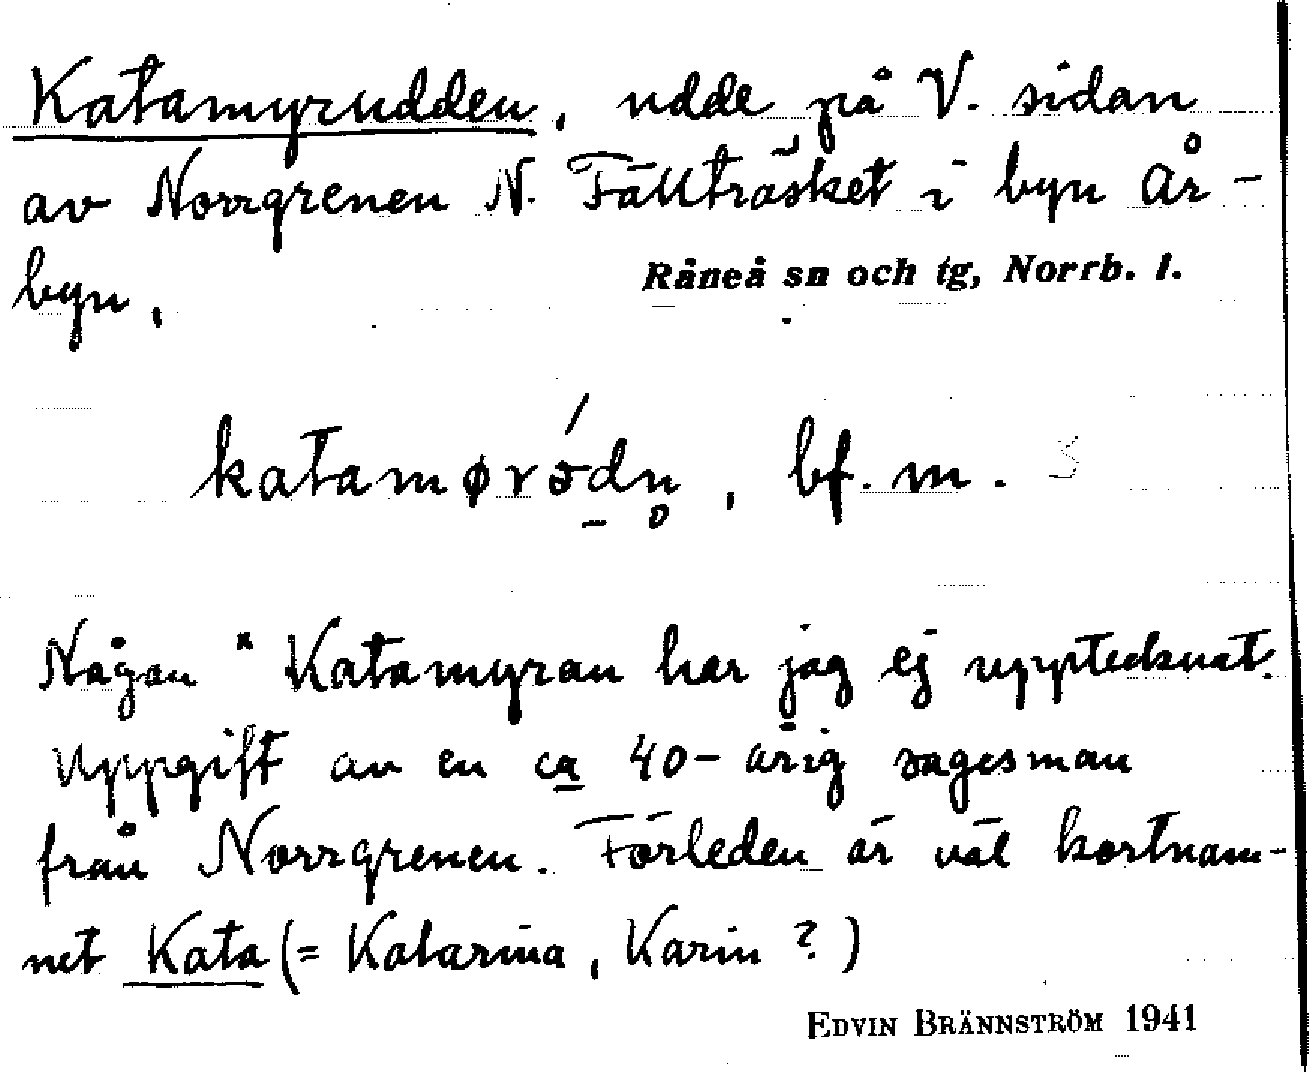 Katamyrudden, udde på V. sidan
av Norrgrenen N. Fällträsket i byn År-
byn,
Råneå sn och tg, Norrb. l.
katamørо́dn̥, bf. m.
Någon *Katamyran har jag ej upptecknat.
Uppgift av en ca 40-årig sagesman
från Norrgrenen. Förleden är väl kortnam-
net Kata (= Katarina, Karin?)
EDVIN BRÄNNSTRÖM 1941